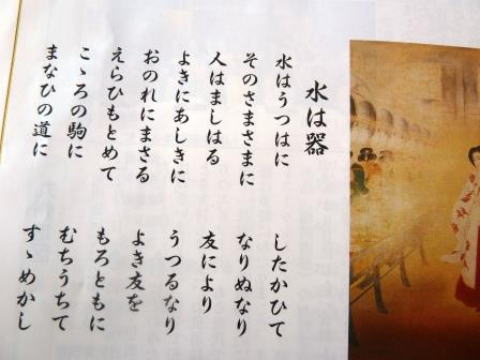 水は器
水はうつはに
したかひて
そのさまさまに
なりぬなり
人はましはる
友により
よきにあしきに
うつるなり
おのれにまさる
よき友を
えらひもとめて
もろともに
こゝろの駒に
むちうちて
まなひの道に
すゝめかし